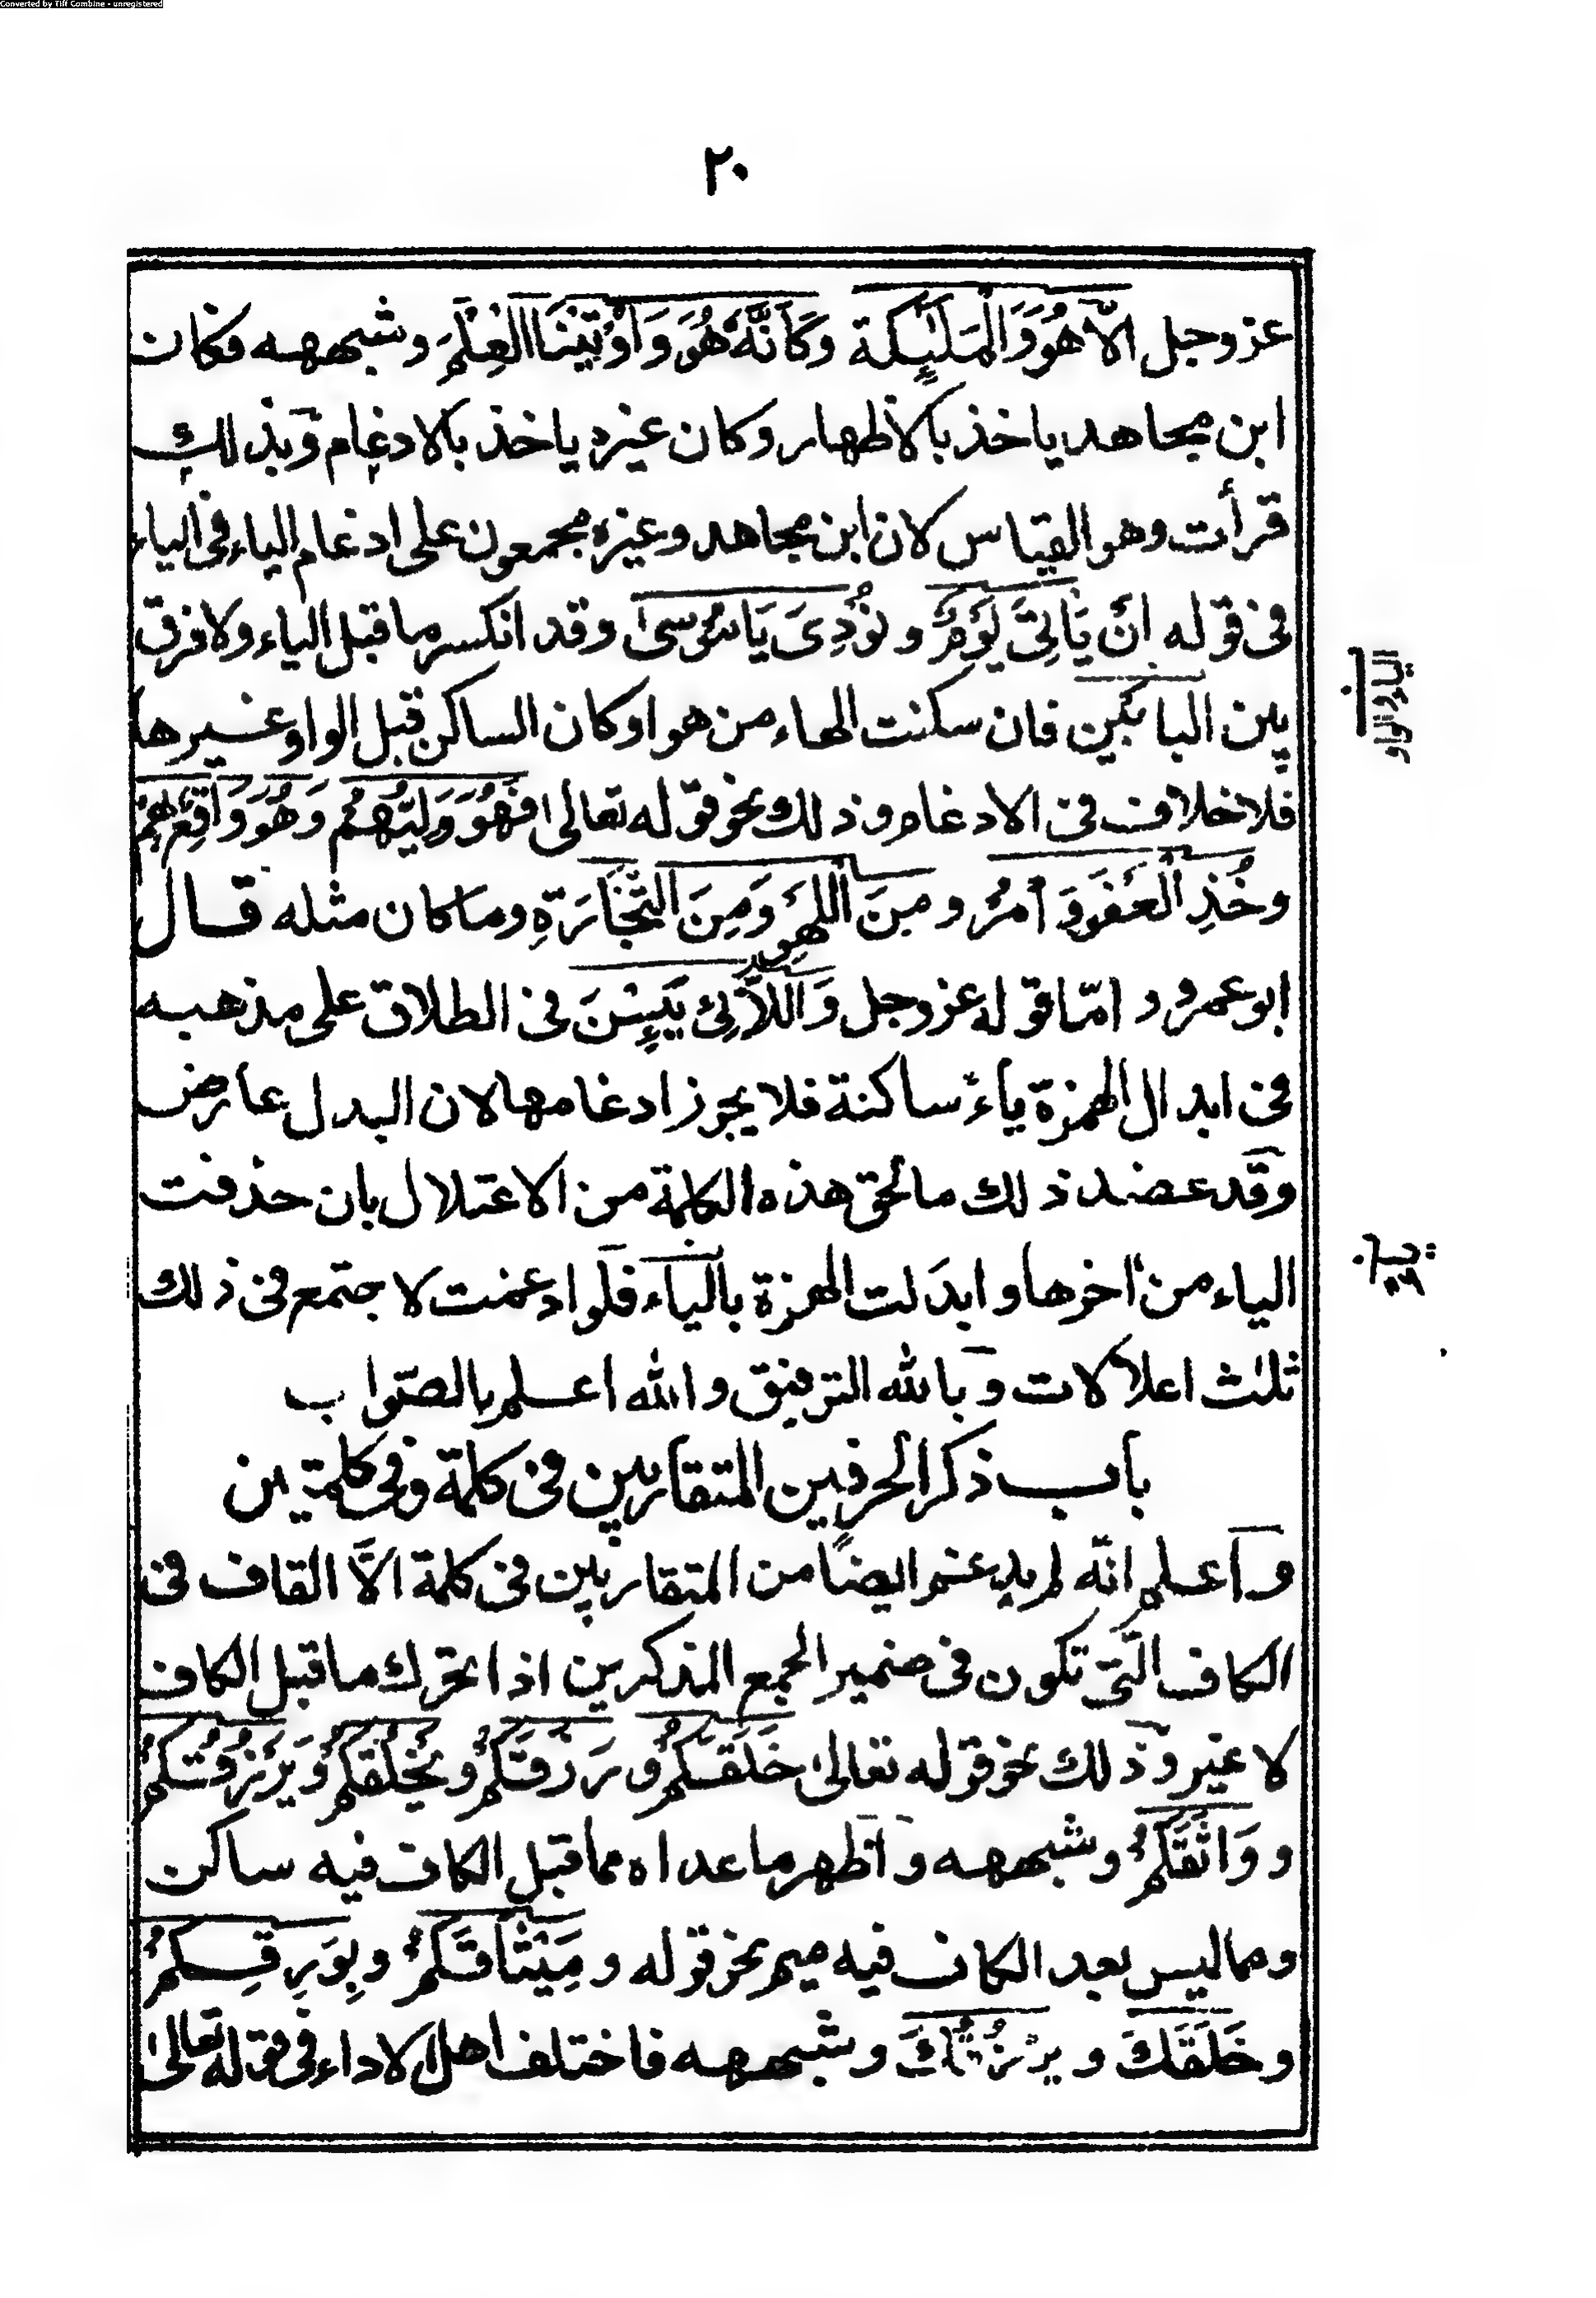 Converted by Tiff Combine - unregistered
٢٠
عز وجل الّا هُوَ وَالْمَلَٰٓئِكَة وَكَأَنَّهُ هُوَ وَأُوْتِيْنَا الْعِلْمَ وشبهه فكان
ابن مجاهد ياخذ بالاظهار وكان غيره ياخذ بالادغام وبذلك
قرأت وهو القياس لان ابن مجاهد وغيره مجمعون على ادغام الياء فى الياء
فى قوله انْ يَاتِىَ يَوْمٌ و نُوْدِىَ يَا مُوْسىٰ وقد انكسر ما قبل الياء ولا فرق
بين البابين فان سكنت الهاء من هو او كان الساكن قبل الواو غيرها
فلا خلاف فى الادغام وذلك نحو قوله تعالى فَهْوَ وَلِيُّهُمْ وَهْوَ وَاقِعٌ بِهِمْ
وخُذِ الْعَفْوَ وَأْمُرْ و مِنَ اللَّهْوِ وَمِنَ التِّجَارَةِ وما كان مثله قال
ابو عمرو و امّا قوله عز وجل وَاللَّائِىْ يَئِسْنَ فى الطلاق على مذهبه
فى ابدال الهمزة ياءً ساكنة فلا يجوز ادغامها لان البدل عارض
وقد عضد ذلك ما لحق هذه الكلمة من الاعتلال بان حذفت
الياء من اخرها وابدلت الهمزة بالياء فلو ادغمت لاجتمع فى ذلك
ثلٰث اعلالات وبالله التوفيق والله اعلم بالصّواب
باب ذكر الحرفين المتقاربين فى كلمة وفى كلمتين
واعلم انّه لم يدغم ايضًا من المتقاربين فى كلمة الّا القاف فى
الكاف الّتى تكون فى ضمير الجمع المذكرين اذا تحرك ما قبل الكاف
لا غير وذلك نحو قوله تعالىٰ خَلَقَكُمْ و رَزَقَكُمْ و يَخْلُقُكُمْ وَيَرْزُقُكُمْ
و وَاثَقَكُمْ وشبهه واظهر ما عداه مما قبل الكاف فيه ساكن
ومما ليس بعد الكاف فيه ميم نحو قوله و مِيْثَاقَكُمْ و بِوَرِقِكُمْ
و خَلَقَكَ و يَرْزُقُكَ وشبهه فاختلف اهل الاداء فى قوله تعالىٰ
الياء والواو